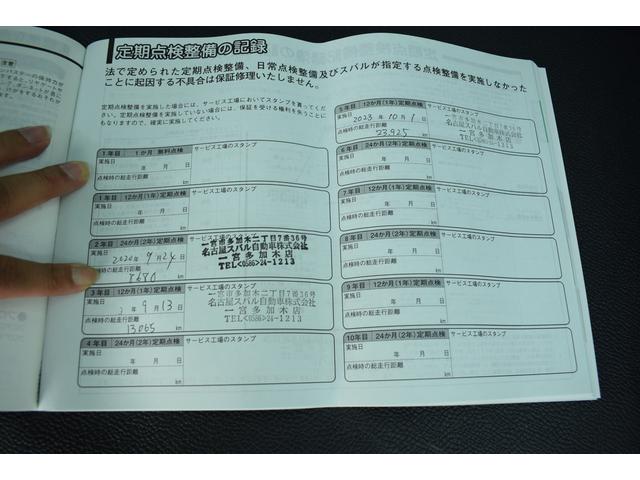 定期点検整備の記録
法で定められた定期点検整備、日常点検整備及びスバルが指定する点検整備を実施しなかった
ことに起因する不具合は保証修理いたしません。
定期点検整備を実施した場合には、サービス工場においてスタンプを貰ってくだ
さい。定期点検整備を実施していない場合には、保証を受ける権利を失うことに
もなりますので、確実に実施してください。
1年目 1か月 無料点検 サービス工場のスタンプ
実施日
年 月 日
点検時の総走行距離
km
1年目 12か月(1年)定期点検 サービス工場のスタンプ
実施日
年 月 日
点検時の総走行距離
km
2年目 24か月(2年)定期点検
実施日
2020年 9月24日
点検時の総走行距離
km
一宮市多加木二丁目7番36号
名古屋スバル自動車株式会社
一宮多加木店
TEL<0586>24-1213
3年目 12か月(1年)定期点検
実施日
年 9月13日
点検時の総走行距離
13065 km
一宮市多加木二丁目7番36号
名古屋スバル自動車株式会社
一宮多加木店
TEL<0586>24-1213
4年目 24か月(2年)定期点検 サービス工場のスタンプ
実施日
年 月 日
点検時の総走行距離
km
5年目 12か月(1年)定期点検 サービス工場のスタンプ
実施日
2023年10月1日
点検時の総走行距離
23925 km
一宮市多加木二丁目7番36号
名古屋スバル自動車株式会社
一宮多加木店
TEL<0586>24-1213
6年目 24か月(2年)定期点検 サービス工場のスタンプ
実施日
年 月 日
点検時の総走行距離
km
7年目 12か月(1年)定期点検 サービス工場のスタンプ
実施日
年 月 日
点検時の総走行距離
km
8年目 24か月(2年)定期点検 サービス工場のスタンプ
実施日
年 月 日
点検時の総走行距離
km
9年目 12か月(1年)定期点検 サービス工場のスタンプ
実施日
年 月 日
点検時の総走行距離
km
10年目 24か月(2年)定期点検 サービス工場のスタンプ
実施日
年 月 日
点検時の総走行距離
km